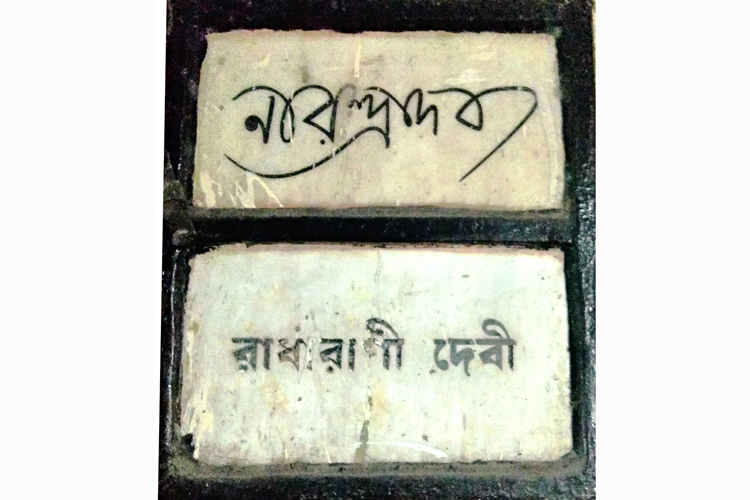 নরেন্দ্রদেব
রাধারাণী দেবী